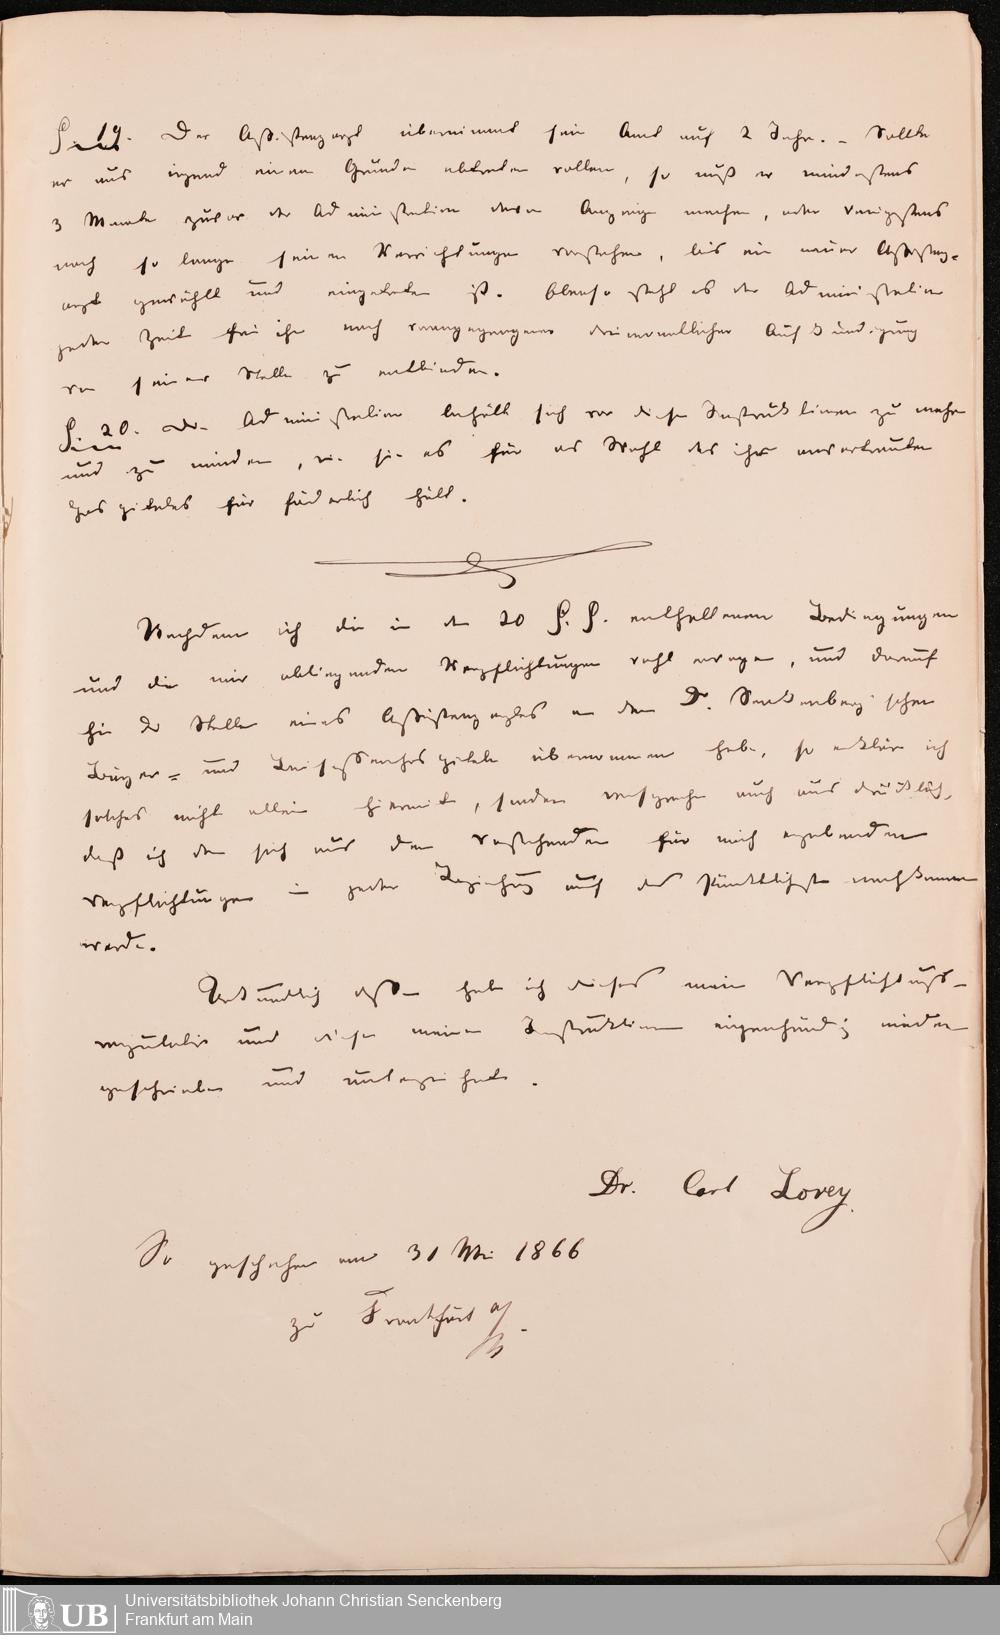 §. 19. Der Assistenzarzt übernimmt sein Amt auf 2 Jahr. – Sollte
er aus irgend einem Grunde abtreten wollen, so muß er mindestens
3 Monate zuvor der Administration davon Anzeige machen, oder wenigstens
noch so lange seinen Verrichtungen vorstehen, bis ein neuer Assistenz=
arzt gewählt und eingetreten ist. Ebenso steht es der Administration
jeder Zeit frei ihn nach vorangegangener dreimonatlicher Aufkündigung
von seiner Stelle zu entbinden.
§. 20. Die Administration behält sich vor diese Instruktionen zu mehren
und zu mindern, wie sie es für das Wohl des ihr anvertrauten
Hospitales für förderlich hält.
Nachdem ich die in den 20 §. §. enthaltenen Bedingungen
und die mir obliegenden Verpflichtungen wohl erwogen, und darauf
hin die Stelle eines Assistenzarztes an dem Dr. Senckenberg'schen
Bürger= und Beisassenhospitale übernommen habe, so erkläre ich
solches nicht allein hiermit, sondern verspreche auch ausdrücklich,
daß ich den sich aus dem Vorstehenden für mich ergebenden
Verpflichtungen in jeder Beziehung auf das Pünktlichste nachkommen
werde.
Urkundlich dessen habe ich dieses mein Verpflichtungs-
und diese meine Instruktionen eigenhändig nieder
geschrieben und unterzeichnet.
Dr. Carl Lorey.
So geschehen am 31 Mai 1866
zu Frankfurt a/M.
UB
Universitätsbibliothek Johann Christian Senckenberg
Frankfurt am Main